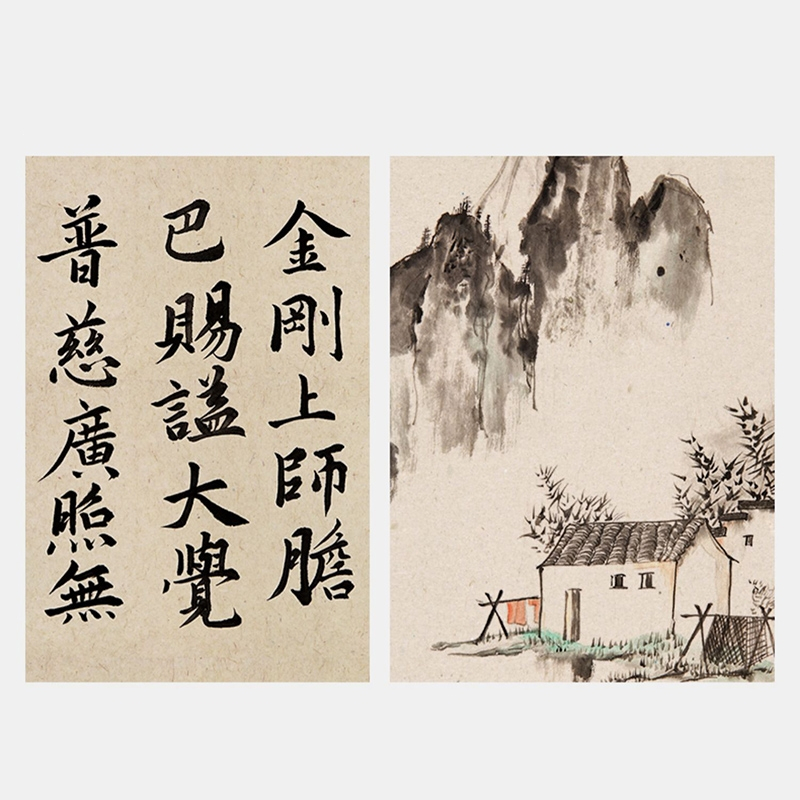 金剛上師膽
巴賜謚大覺
普慈廣照無